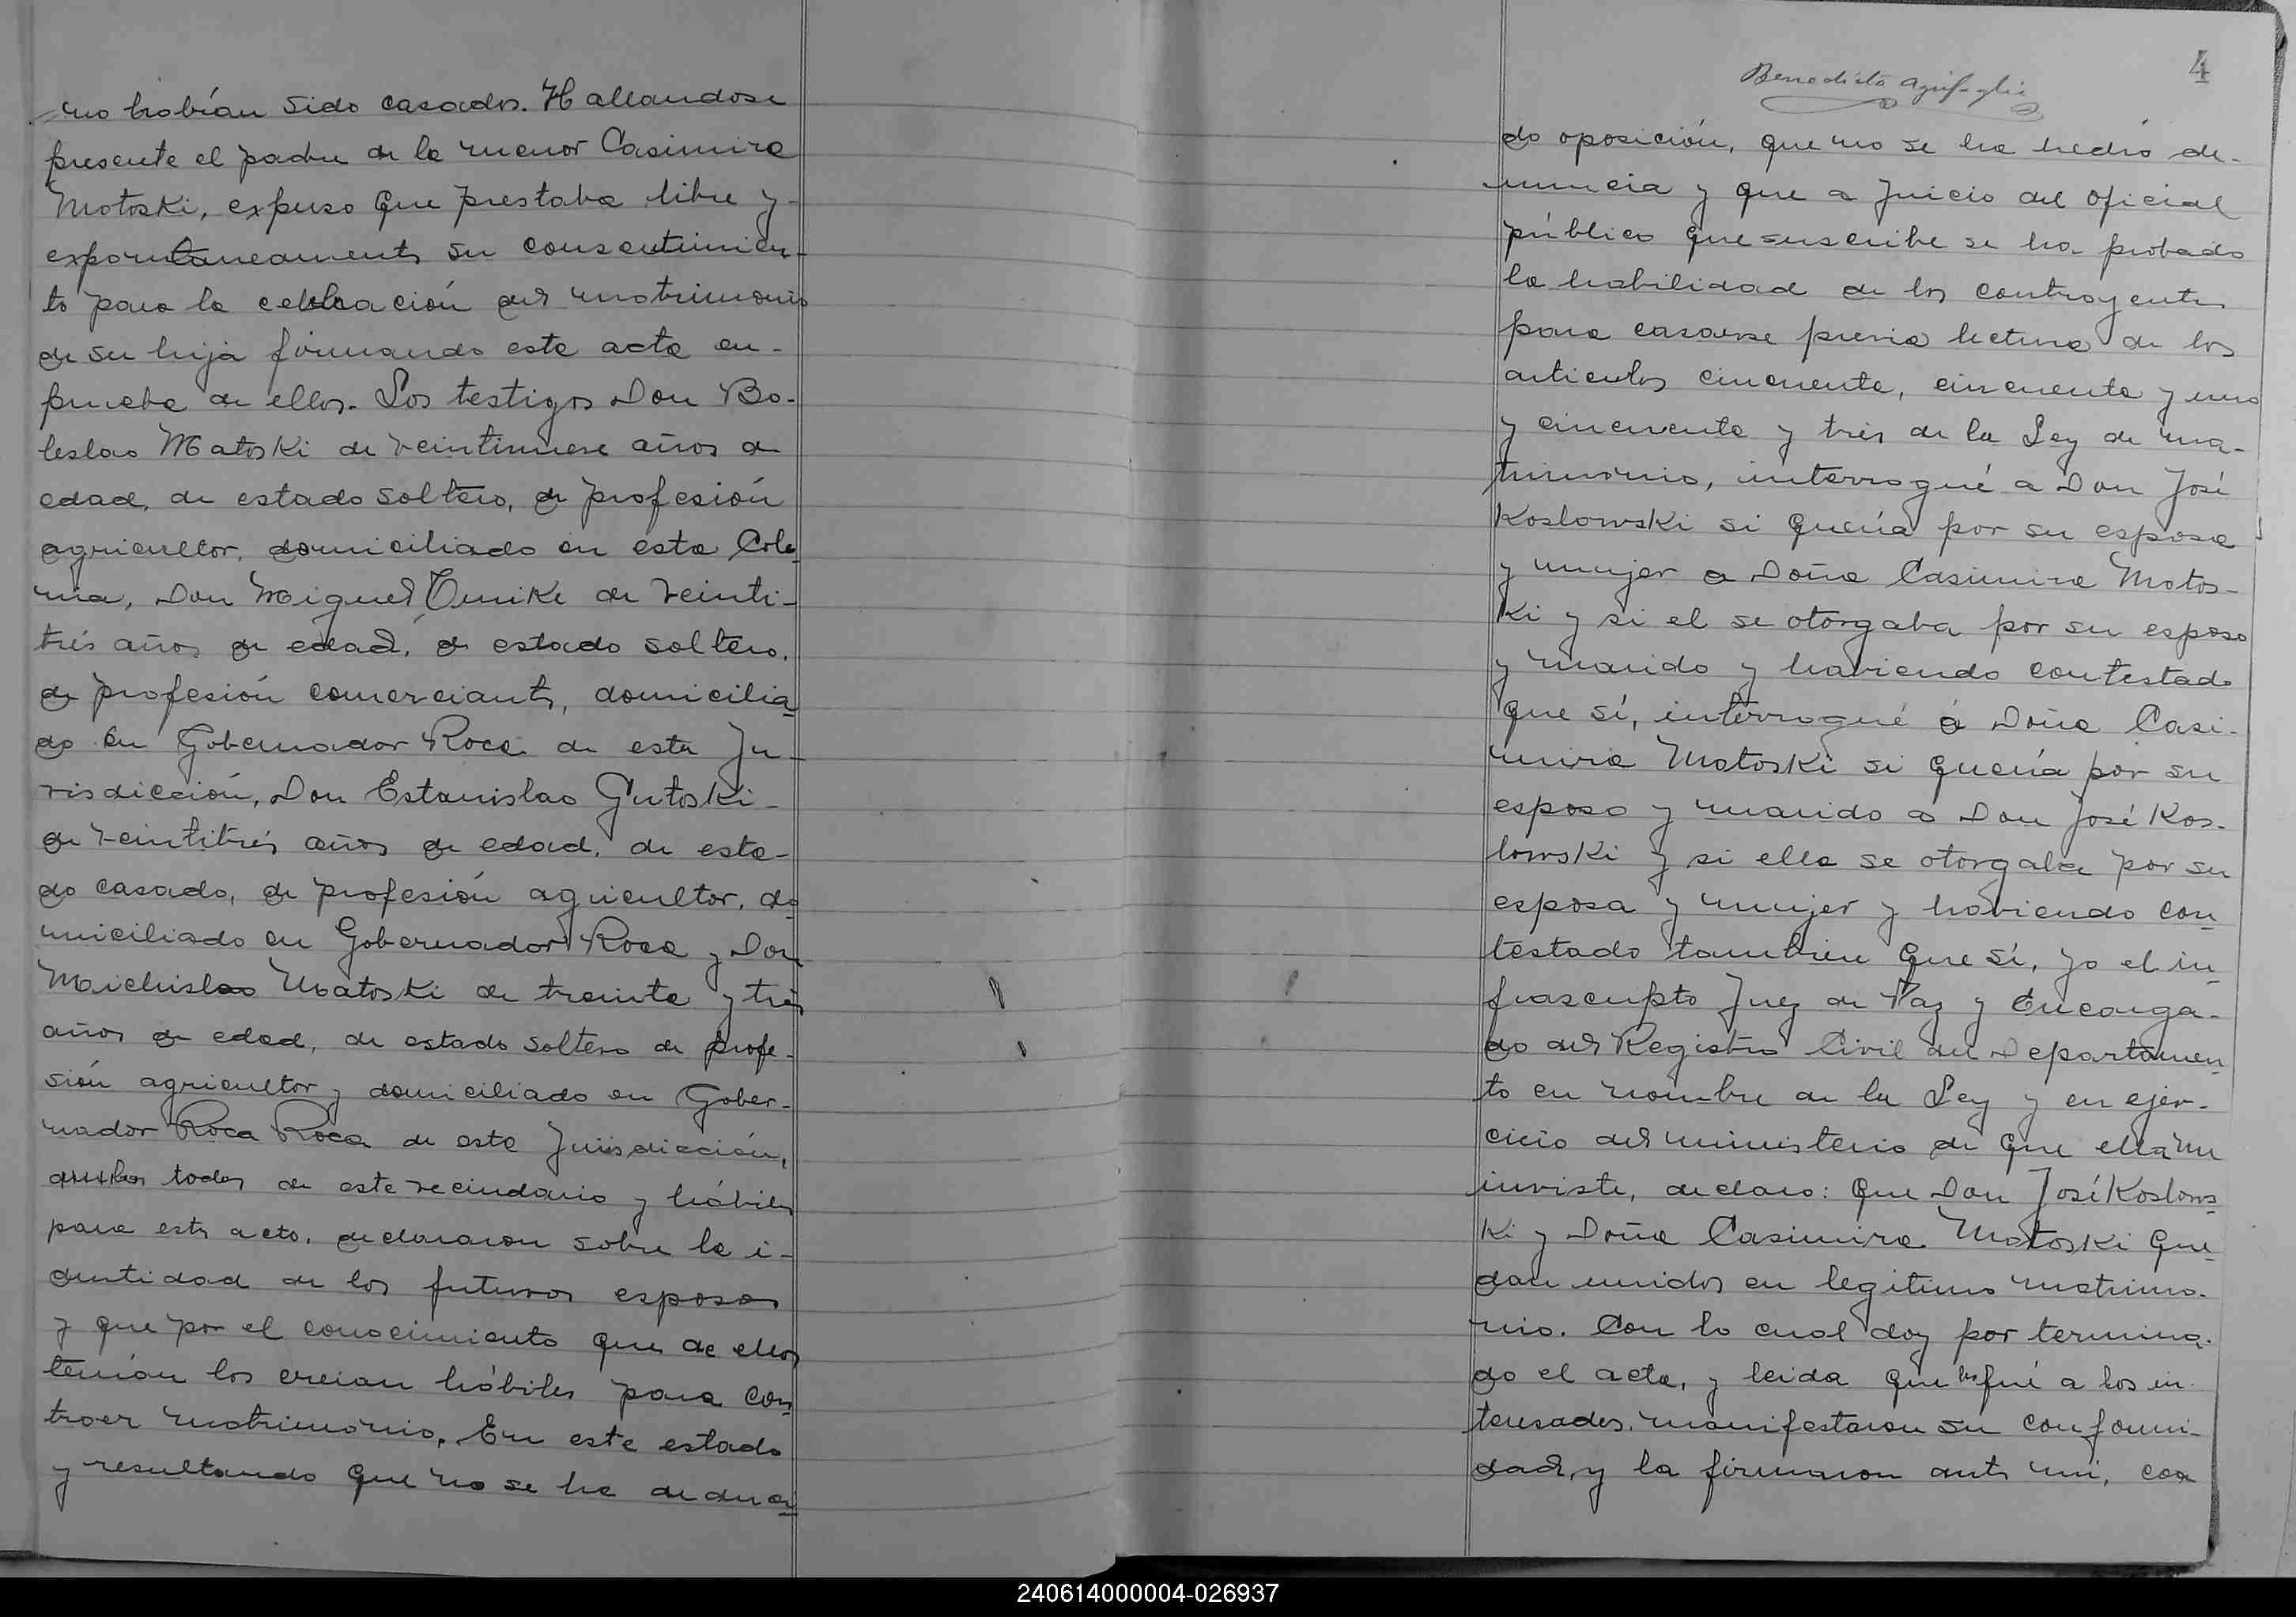 no habían sido casados. Hallandose
presente el padre de la menor Casimira
Motoski, expuso que prestaba libre y
expontaneamente su consentimien-
to para la celebración del matrimonio
de su hija firmando este acta en
prueba de ellos. Los testigos Don Bo-
leslao Matoski de veintinueve años de
edad, de estado soltero, de profesión
agricultor, domiciliado en esta Colo
nia, Don Miguel de veinti-
trés años de edad, de estado soltero,
de profesión comerciante, domicilia
do en Gobernador Roca de esta Ju-
risdicción, Don Estanislao Gutoski-
de veintitrés años de edad, de esta-
do casado, de profesión agricultor, do
miciliado en Gobernador Roca y Don
Michislao Matoski de treinta y tres
años de edad, de estado soltero de profe-
sión agricultor y domiciliado en Gober-
nador Roca Roca de esta Jurisdicción,
todos de este vecindario y hábiles
para este acto, declararon sobre la i-
dentidad de los futuros esposos
y que por el conocimiento que de ellos
tenían los creian hábiles para con
traer matrimonio. En este estado
y resultando que no se ha deduci
4
Benedicto
do oposición, que no se ha hecho de-
nuncia y que a juicio del oficial
público que suscribe se ha probado
la habilidad de los contrayentes
para casarse previa lectura de los
articulos cincuenta, cincuenta y uno
y cincuenta y tres de la Ley de ma-
trimonio, interrogué a Don José
Koslowski si quería por su esposa
y mujer a Doña Casimira Motos-
ki y si el se otorgaba por su esposo
y marido y haviendo contestado
que sí, interrogué á Doña Casi-
mira Motoski si quería por su
esposo y marido a Don José Kos-
lowski y si ella se otorgaba por su
esposa y mujer y haviendo con
testado tambien que sí, yo el in
frascripto Juez de Paz y Encarga-
do del Registro Civil del Departamen
to en nombre de la Ley y en ejer-
cicio del ministerio de que ella me
inviste, declaro: que Don José Koslows
ki y Doña Casimira Motoski que
dan unidos en legitimo matrimo-
nio. Con lo cual doy por termina-
do el acta, y leida que les fué a los in
teresados, manifestaron su conformi-
dad, y la firmaron ante mi, con
240614000004-026937